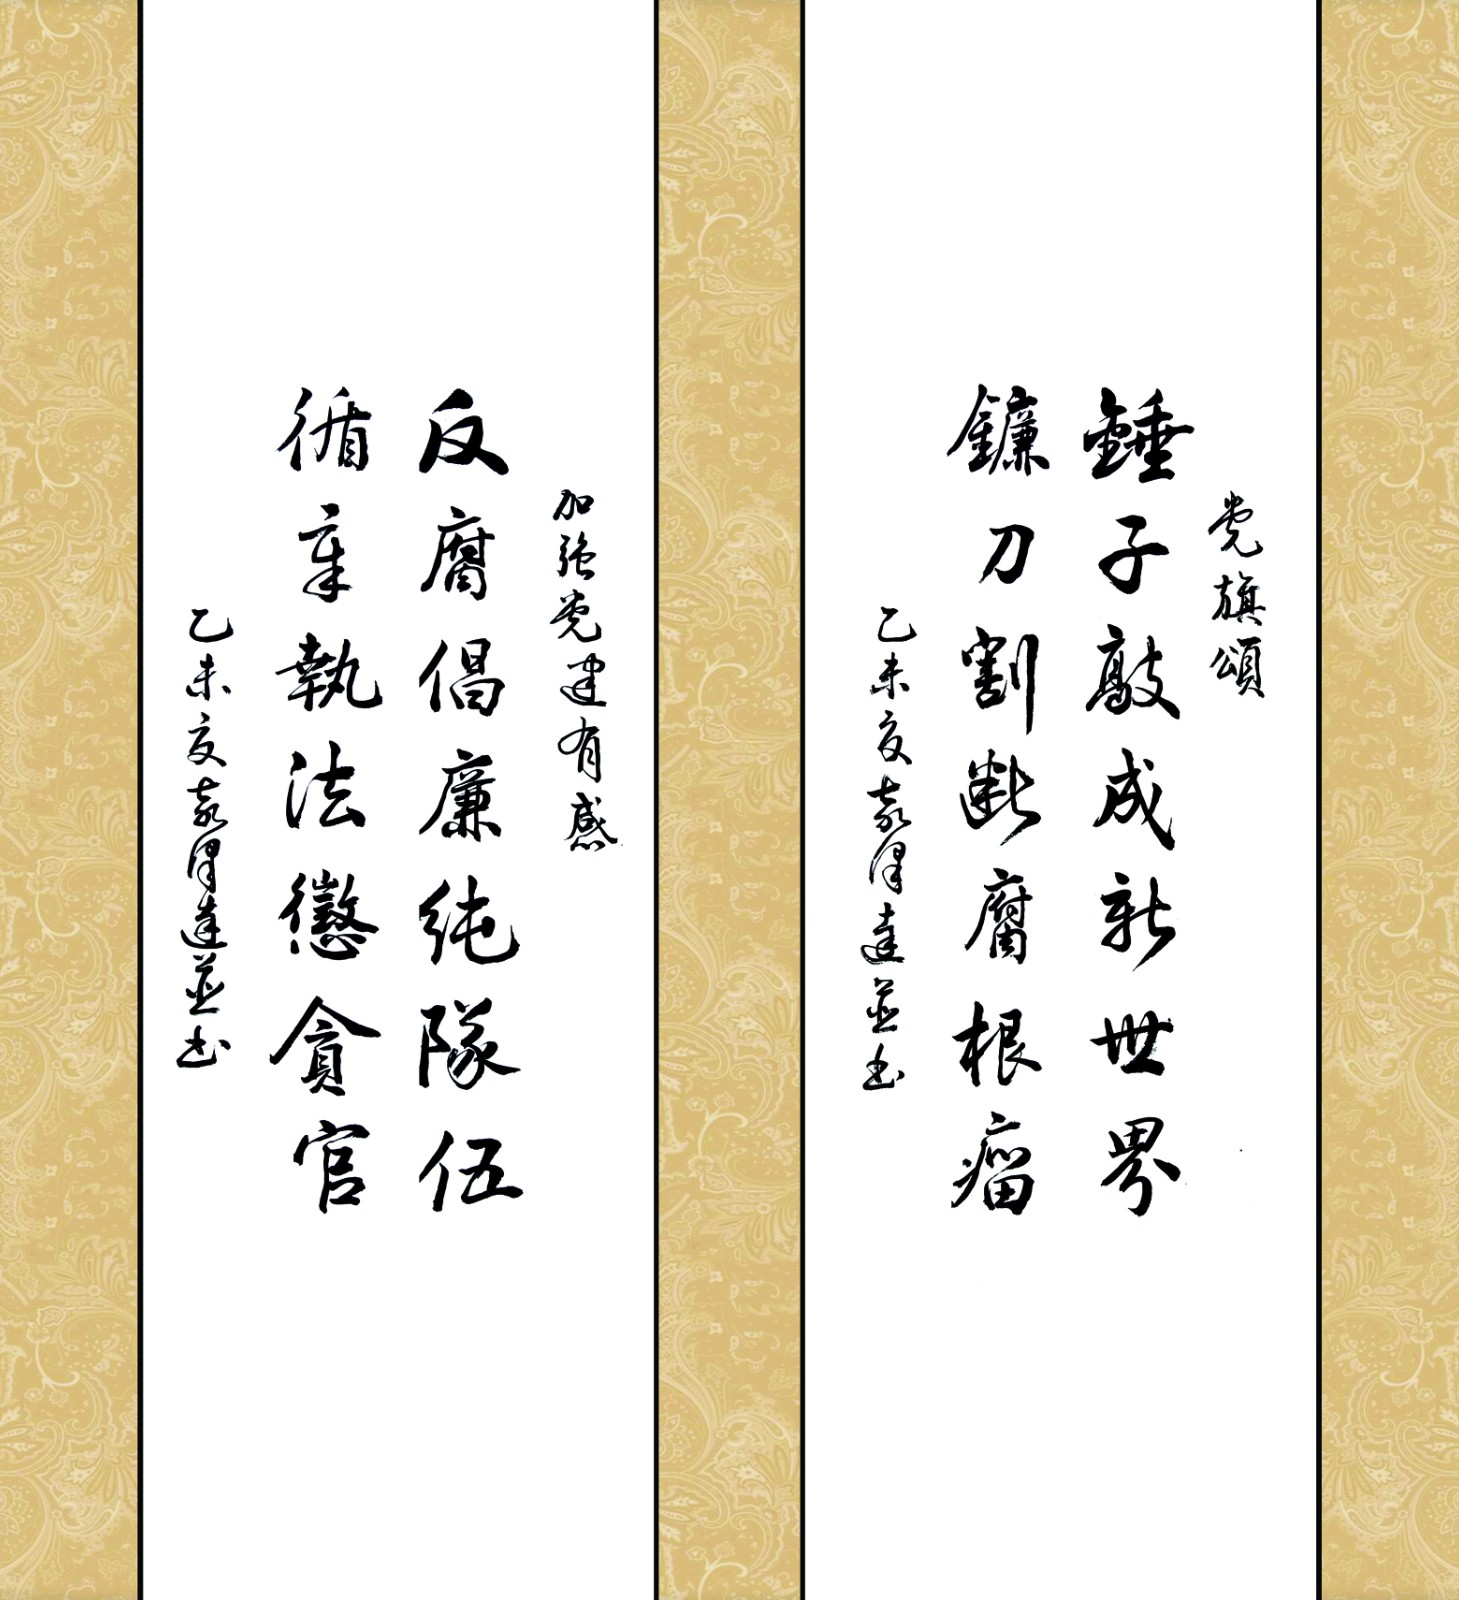 党旗頌
錘子敲成新世界
鐮刀割断腐根瘤
乙未夏袁澤達並书
加强党建有感
反腐倡廉纯隊伍
循章執法懲貪官
乙未夏袁澤達並书